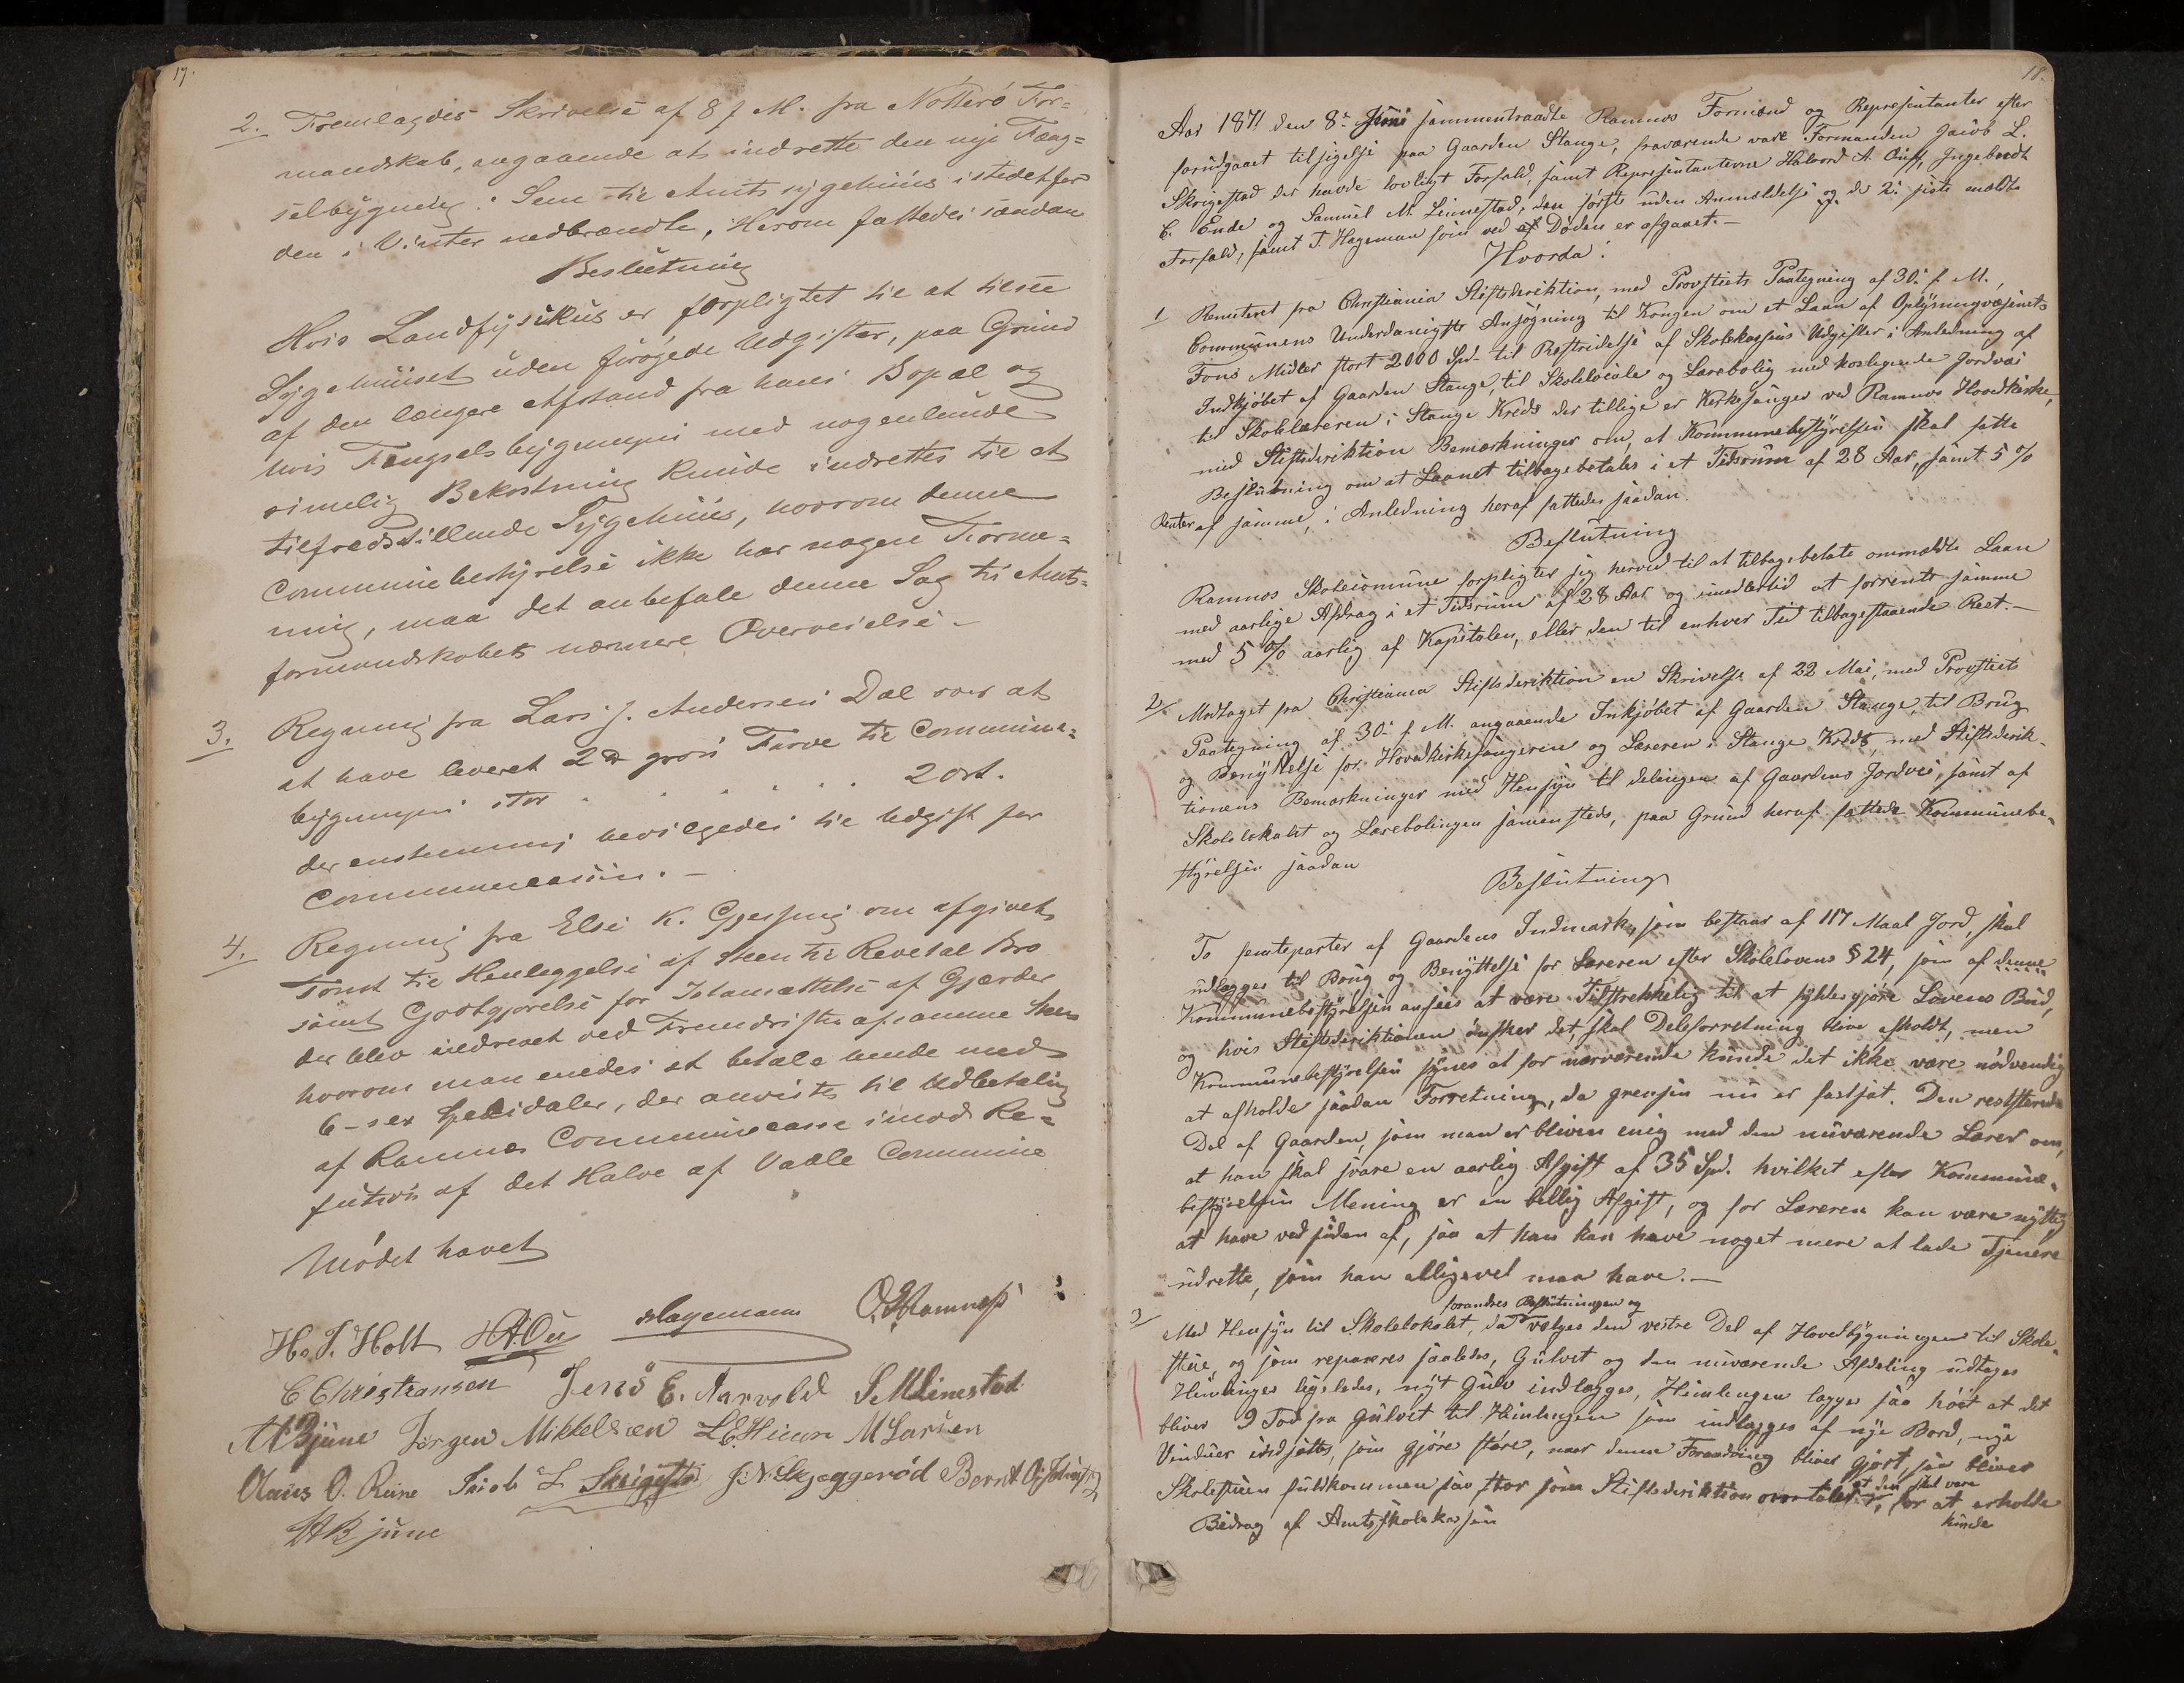 17.
2. Fremlagdes Skrivelse af 8 f M. fra Nøtterø For=
mandskab, angaaende at indrette den nye Fæng=
selbygning. Sem til Amtssygehuus istedetfor
den i Vinter nedbrændte, Herom fattedes saadan
Beslutning
Hvis Landfysikus er forpligtet til at tilsee
Sygehuuset uden forøgede Udgifter, paa Grund
af den længere Afstand fra hans Bopæl og
hvis Fængselsbygningen med nogenlunde
rimelig Bekostning kunde indrettes til et
tilfredsstillende Sygehuus, hvorom denne
Communebestyrelse ikke har nogen Forme=
ning, maa det anbefale denne Sag til Amts=
formandskabets nærmere Overveielse –
3. Regning fra Lars J. Andersen Dal for at
at have leveret 2 gross Farve til Commune=
bygningen stor . . . . . 2 ort.
der enstemmig bevilgedes til Udgift for
Communecassen. –
4. Regning fra Else K. Gjersøug om afgivet
Tomt til Henleggelse af Steen til Revetal Bro
samt Godtgjørelse for Istansættelse af Gjærder
der blev nedrevet ved Fremdriften af samme Steen
hvorom man enedes at betale hende med
6 – sex Speesidaler, der anvistes til Udbetaling
af Ramnes Communecasse imod Re=
fution af det Halve af Vaale Commune
Mødet hævet
H. T. Holt HAOu Hagemann O. H Ramness
C Christiansen Jens E. Aarvold S M Linestad
A Bjune Jørgen Mikkelsen L. C. Hieun M Larsen
Claus O. Rüne Jacob L Skrigestad J. N. Skjeggerød Bernt O. Solberg
HABjune
18.
Aar 1871 den 8de Juni sammentraadte Ramnes Formænd og Repræsentanter efter
forudgaaet tilsigelse paa Gaarden Stange, fraværende vare Formanden Jacob L.
Skrigestad der havde lovligt Forfald, samt Repræsentanterne Halvord A. Ouff, Ingebredt
C. Ende og Samuel M. Linnestad, den første uden Anmeldelse og de 2de siste meldte
Forfald, samt T. Hageman som ved af Døden er afgaaet. –
Hvorda:
1 Remiteret fra Christiania Stiftsdirektion, med Provstiets Paategning af 30. f. M.,
Communens Underdanigste Ansøgning til Kongen om et Laan af Oplysningvæsenets
Fons Midler stort 2000 Spd. til Bestridelse af Skolekassens Udgifter i Anledning af
Indkjøbet af Gaarden Stange, til Skolelocale og Lærebolig med hosligende Jordvei
til Skolelæreren i Stange Kreds der tillige er Kirkesanger ved Ramnes Hovedkirke,
med Stiftsdirektion Bemærkninger om, at Kommunebestyrelsen skal fatte
Beslutning om at Laanet tilbagebetales i et Tidsrum af 28 Aar, samt 5 %
Renter af samme, i Anledning heraf fattedes saadan.
Beslutning
Ramnes Skolecomune forpligter sig herved til at tilbagebetale ommeldte Laan
med aarlige Afdrag i et Tidsrum af 28 Aar og imidlertid at forrente samme
med 5 % aarlig af Kapitalen, eller den til enhver Tid tilbagestaaende Rest. –
2 Modtaget fra Christiania Stiftsdirektion en Skrivelse af 22 Mai, med Provstiets
Paategning af 30. f. M. angaaende Inkjøbet af Gaarden Stange, til Brug
og Benyttelse for Hovedkirkesangeren og Læreren i Stange Kreds, med Stiftsdirik-
tionens Bemærkninger med Hensyn til delingen af Gaardens Jordvei, samt af
Skolelokalet og Lærebolingen samensteds, paa Grund heraf fattede Kommunebe=
styrelsen saadan
Beslutning
To femteparter af Gaardens Indmark, som bestaar af 117 Maal Jord, skal
udlægges til Brug og Benyttelse for Læreren efter Skolelovens § 24, som af denne
Kommunebestyrelsen ansees at være Tilstrekkelig til at fyldesgjøre Lovens Bud,
og hvis Stiftsdirektionen ønsker det, skal Deleforretning blive afholdt, men
Kommunebestyrelsen synes at for nærværende kunde det ikke være nødvendig
at afholde saadan Forretning, da grensen nu er fastsat. Den resterende
Del af Gaarden, som man er bleven enig med den nuværende Lærer om,
at han skal svare en aarlig Afgift af 35 Spd. hvilket efter Kommune=
bestyrelsen Mening er en billig Afgift, og for Læreren kan være nyttig
at have ved siden af, saa at han kan have noget mere at lade Tjenere
udrette, som han alligevel maa have. –
forandres Beslutningen og
3 Med Hensyn til Skolelokalet, da vælges den vestre Del af Hovedbygningen til Skole=
stue, og som repareres saaledes, Gulvet og den nuværende Afdeling udtages
Himlinger ligeledes, nyt Gulv indlægges, Himlingen lægges saa høit at det
bliver 9 Fod fra Gulvet til Himlingen som indlægges af nye Bord, nye
Vinduer indsættes, som gjøres større, naar denne Forandring bliver gjort, saa bliver
Skolestuen fuldkommen saa stor som Stiftsdirektion omtaler at den skal være, for at erholde
Bidrag af Amtsskolekassen kunde